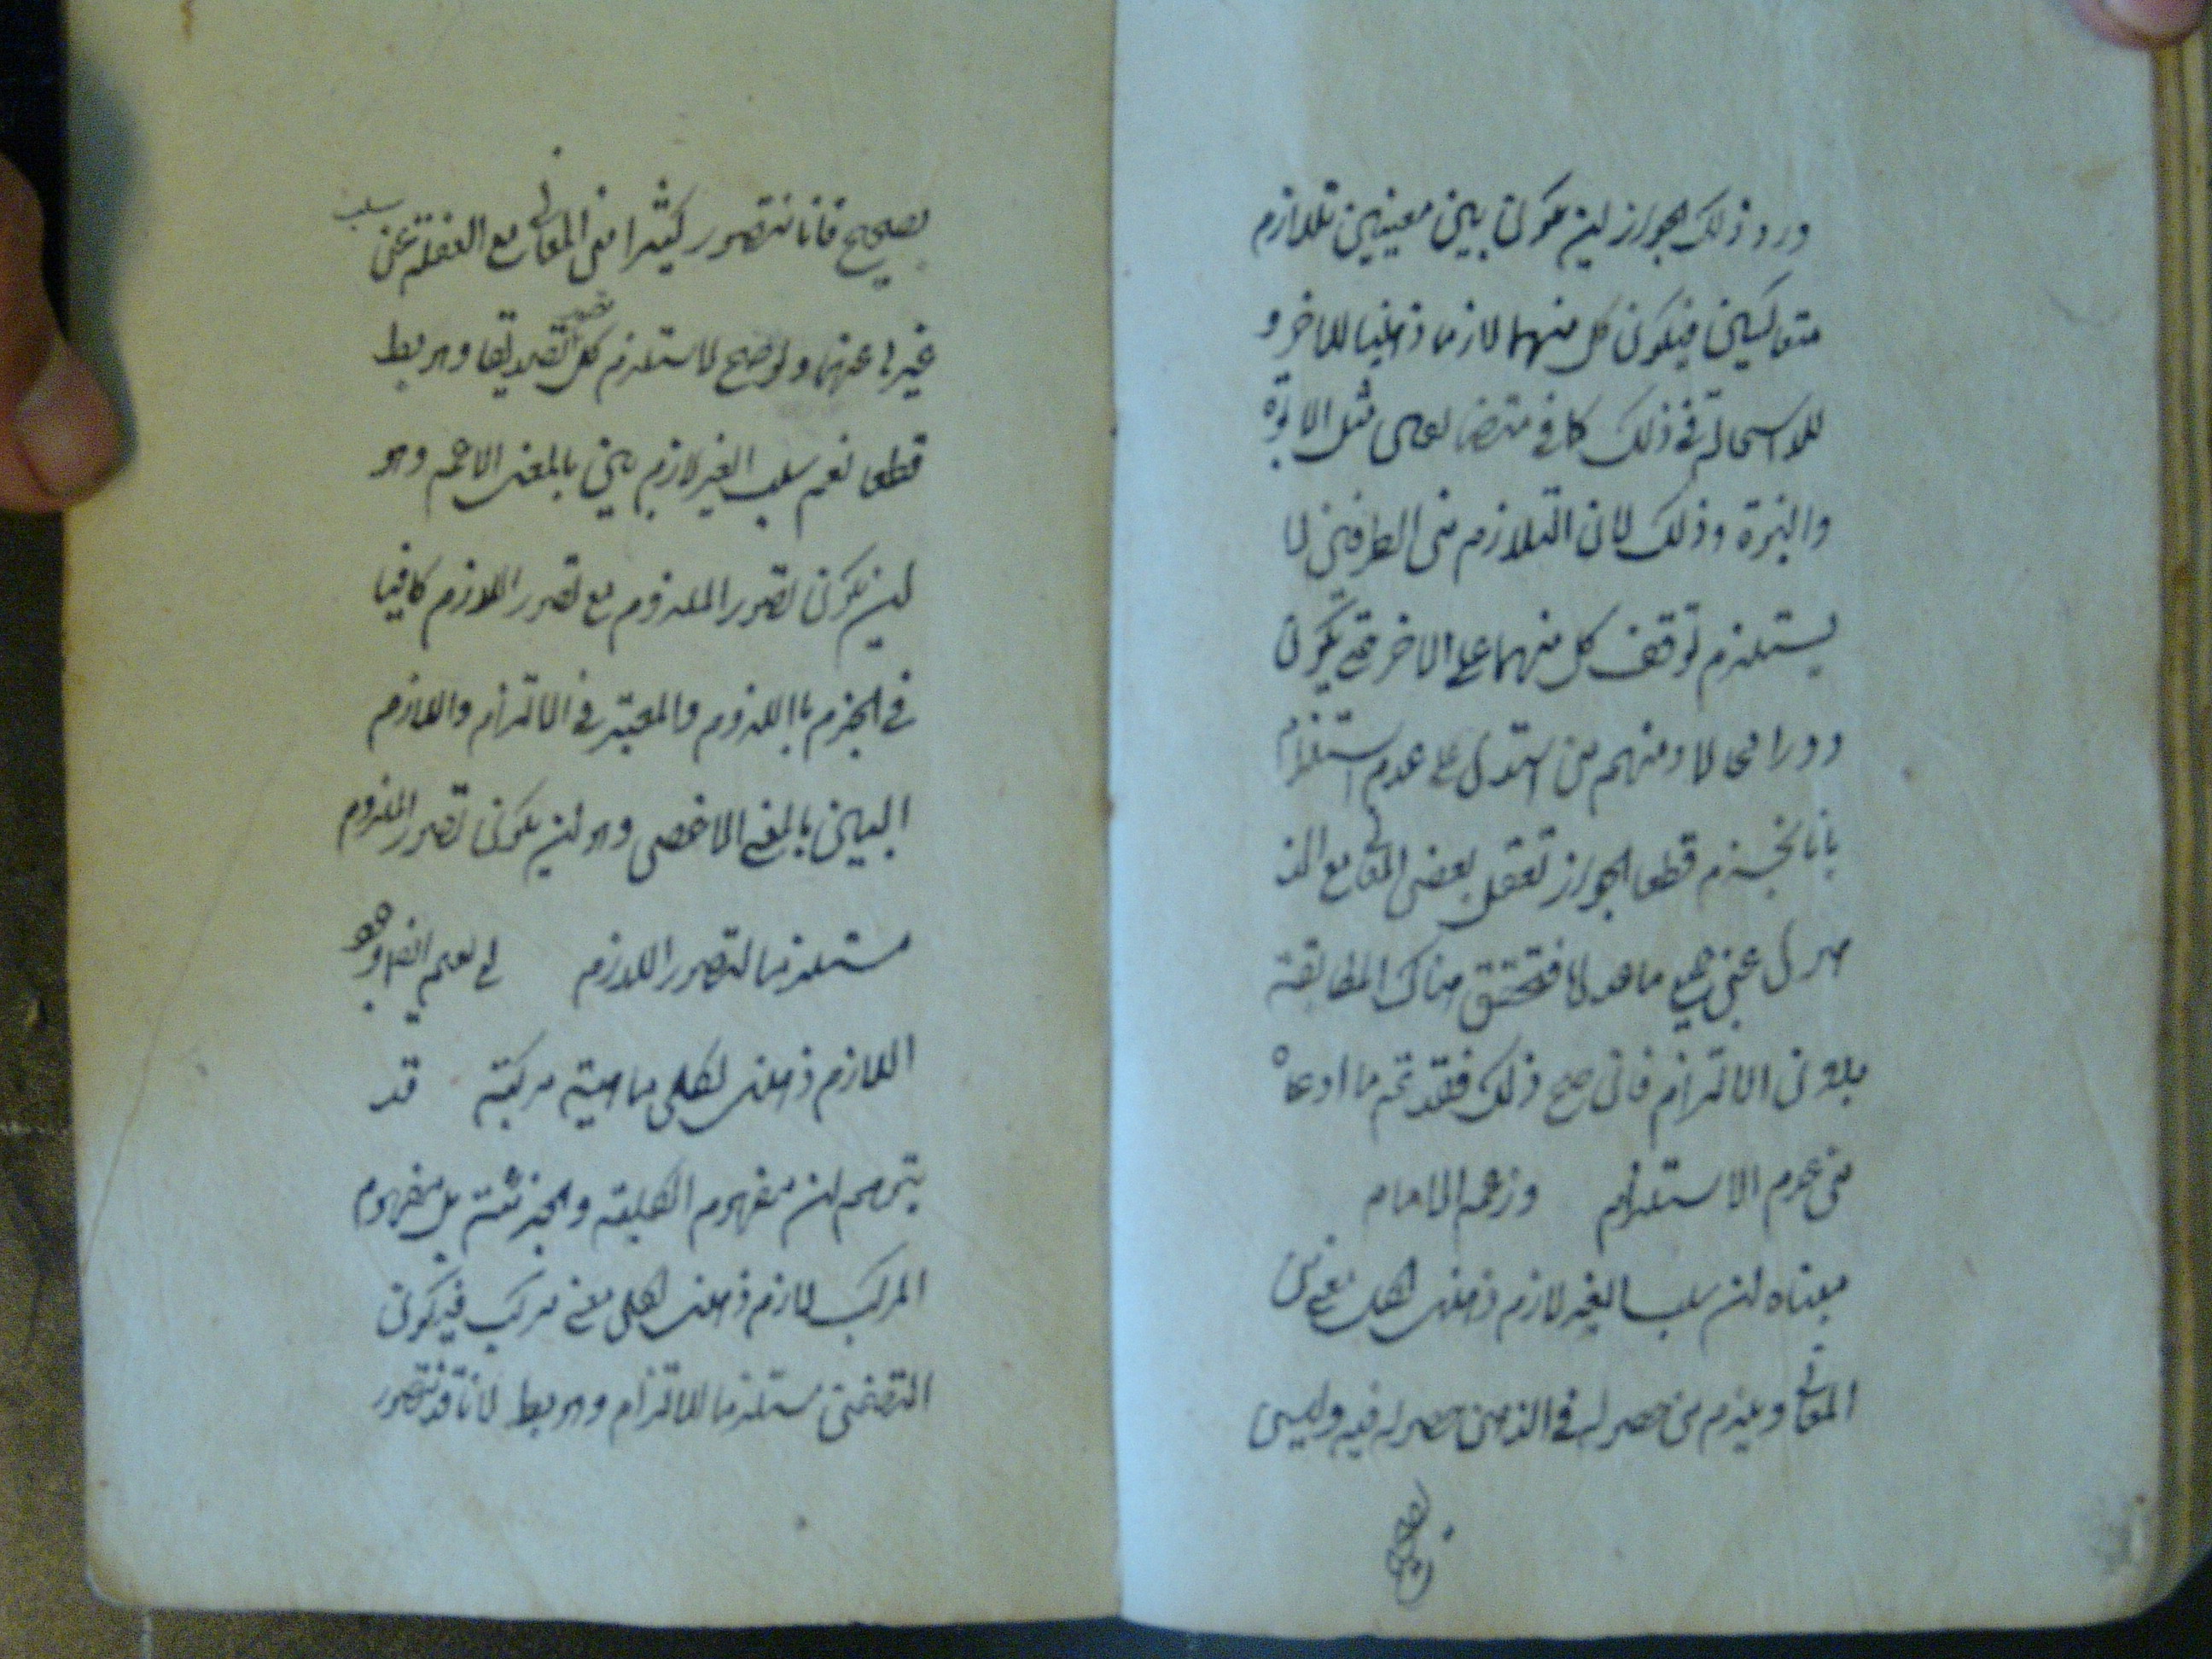 ورد ذلك لجواز ان يكون بين معنيين تلازم
متعاكسين فيكون كل منهما لازما ذهنيا للاخر و
لا استحالة في ذلك كما في متضايفين مثل الابوة
والبنوة وذلك لان التلازم من الطرفين لا
يستلزم توقف كل منهما على الاخر حتى يكون
دورا محالا ومنهم من استدل على عدم استلزام
بانا نجزم قطعا لجواز تعقل بعض المعاني مع الذ
هول عن جميع ما عداها فتحقق هناك المطابقة
بدون الالتزام فان صح ذلك فقد تم ما ادعاه
من عدم الاستلزام وزعم الامام
معناه ان سلب الغير لازم ذهني لكل معنى من
المعاني ويلزم من حصوله في الذهن حصوله فيه وليس
بصحيح
بصحيح فانا نتصور كثيرا من المعاني مع الغفلة عن سلب
غيرها عنها ولو صح لاستلزم كل تصور تصديقا وهو بط
قطعا نعم سلب الغير لازم بين بالمعنى الاعم وهو
ان يكون تصور الملزوم مع تصور اللازم كافيا
في الجزم باللزوم والمعتبر في الالتزام واللازم
البين بالمعنى الاخص وهو ان يكون تصور الملزوم
مستلزما لتصور اللازم لم يعلم ايضا وجود
اللازم ذهني لكل ماهية مركبة قد
يتوهم ان مفهوم الكلية والجزئية بل مفهوم
المركب لازم ذهني لكل معنى مركب فيكون
التضمن مستلزما للالتزام وهو بط لانا قد نتصور